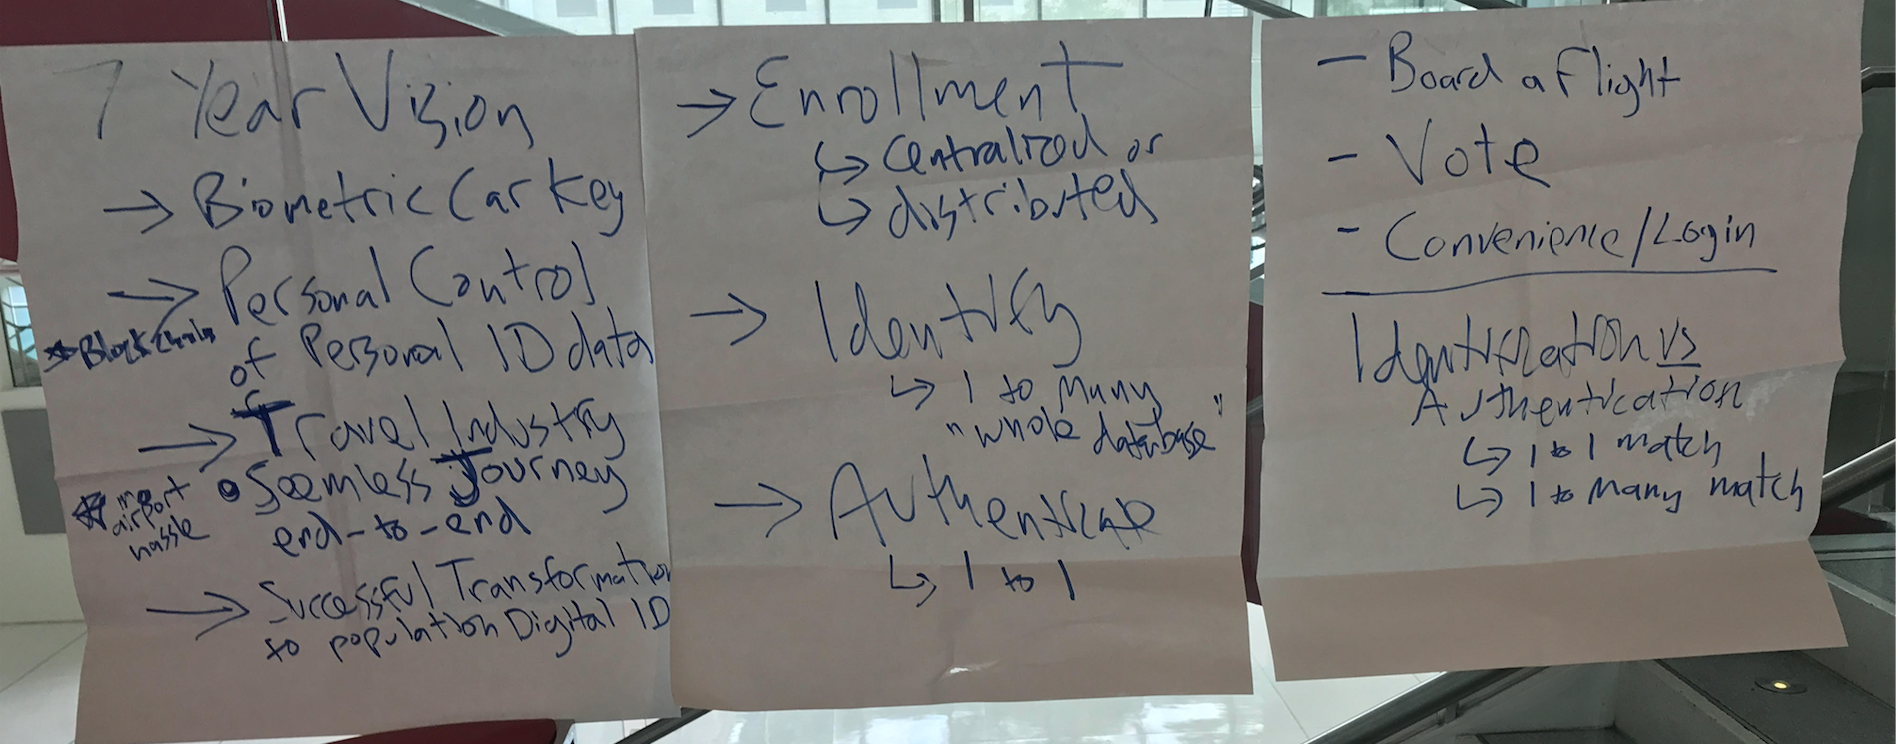 7 Year Vision
→ Biometric Car Key
→ Personal Control
of Personal ID data
* Blockchain
→ Travel Industry
• Seemless Journey
end-to-end
* airport
hassle
→ Successful Transformation
to population Digital ID
→ Enrollment
↳ Centralized or
↳ distributed
→ Identify
↳ 1 to Many
"whole database"
→ Authenticate
↳ 1 to 1
- Board a flight
- Vote
- Convenience/Login
Identification vs
Authentication
↳ 1 to 1 match
↳ 1 to Many match